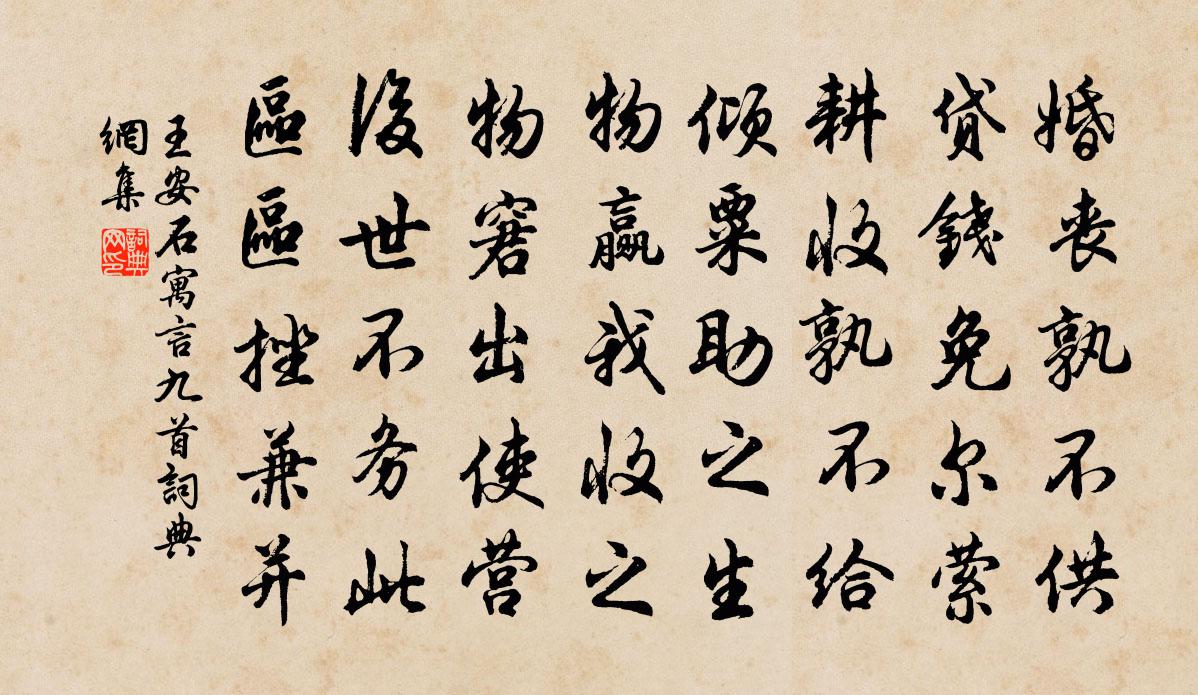 婚丧孰不供
貸錢免尔萦
耕收孰不给
倾粟助之生
物贏我收之
物窘出使营
後世不务此
區區挫兼并
王安石寓言九首詞典
網集
詞典
网印